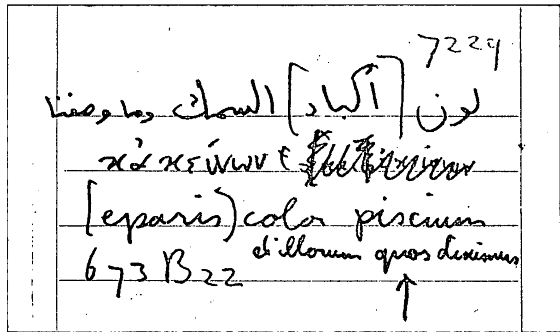 7229
لون [أكباد] السمك وما وصفنا
κἀκείνων ε
[eparis) color piscium
et illorum quos diximus
673 B22 ↑